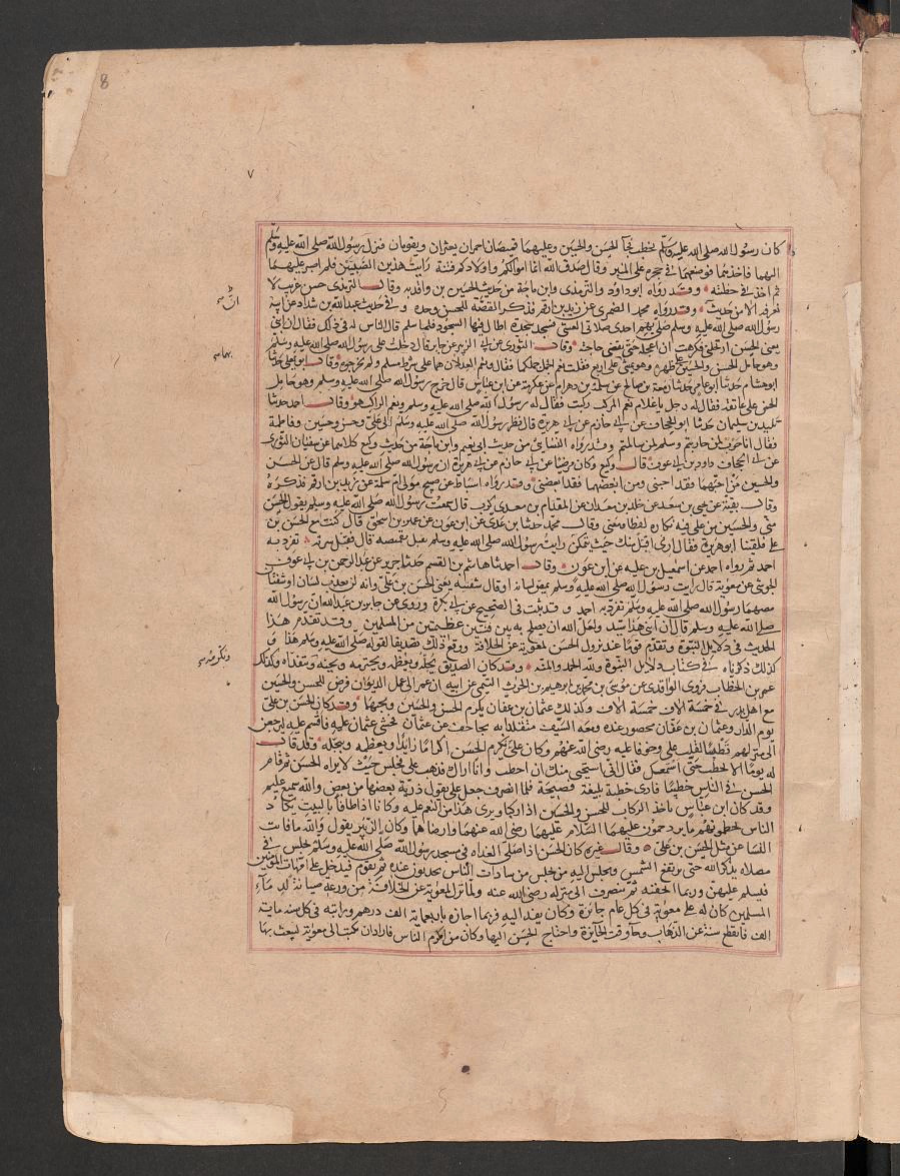 8
٧
كان رسول الله صلى الله عليه وسلم يخطب فجآ الحسن والحسين وعليهما قميصان احمران يعثران ويقومان فنزل رسول الله صلى الله عليه وسلم
اليهما فاخذهما فوضعهما في حجره على المنبر وقال صدق الله انما اموالكم واولادكم فتنة رايت هذين الصبيين فلم اصبر عليهما
ثم اخذ في خطبته وقد رواه ابو داود والترمذي وابن ماجة من حديث الحسين بن واقد به وقال الترمذي حسن غريب لا
نعرفه الا من حديثه وقد رواه محمد الضمري عن زيد بن ارقم فذكر القصة للحسن وحده وفي حديث عبد الله بن شداد عن ابيه
رسول الله صلى الله عليه وسلم صلى بهم احدى صلاتي العشي فسجد سجدة اطال فيها السجود فلما سلم قال الناس له في ذلك فقال ان ابني
يعني الحسن ارتحلني فكرهت ان اعجله حتى يقضي حاجته وقال الثوري عن ابي الزبير عن جابر قال دخلت على رسول الله صلى الله عليه وسلم
وهو حامل الحسن والحسين على ظهره وهو يمشي على اربع فقلت نعم الجمل جملكما فقال ونعم العدلان هما على شرط مسلم ولم يخرجوه وقال ابو يعلى حدثنا
ابو هشام حدثنا ابو عامر حدثنا زمعة بن صالح عن سلمة بن وهرام عن عكرمة عن ابن عباس قال خرج رسول الله صلى الله عليه وسلم وهو حامل
الحسن على عاتقه فقال له رجل يا غلام نعم المركب ركبت فقال له رسول الله صلى الله عليه وسلم ونعم الراكب هو وقال احمد حدثنا
تليد بن سليمان حدثنا ابو الجحاف عن ابي حازم عن ابي هريرة قال نظر رسول الله صلى الله عليه وسلم الى علي وحسن وحسين وفاطمة
فقال انا حرب لمن حاربتم وسلم لمن سالمتم وقد رواه النسائي من حديث ابي نعيم وابن ماجة من حديث وكيع كلاهما عن سفيان الثوري
عن ابي الجحاف داود بن ابي عوف قال وكيع وكان مرضيا عن ابي حازم عن ابي هريرة ان رسول الله صلى الله عليه وسلم قال عن الحسن
والحسين من احبهما فقد احبني ومن ابغضهما فقد ابغضني وقد رواه اسباط عن صبيح مولى ام سلمة عن زيد بن ارقم فذكره
وقال بقية عن بحير بن سعد عن خالد بن معدان عن المقدام بن معدي كرب قال سمعت رسول الله صلى الله عليه وسلم يقول الحسن
مني والحسين من علي فيه نكارة لفظا ومعنى وقال محمد حدثنا بن عدي عن ابن عون عن عمير بن اسحق قال كنت مع الحسن بن
علي فلقينا ابو هريرة فقال ارني اقبل منك حيث رايت رسول الله صلى الله عليه وسلم يقبل بقميصه قال فقبل سرته تفرد به
احمد ثم رواه احمد عن اسمعيل بن علية عن ابن عون وقال احمد ثنا هاشم بن القسم حدثنا جرير عن عبد الرحمن بن ابي عوف
الجرشي عن معوية قال رايت رسول الله صلى الله عليه وسلم يمص لسانه او قال شفته يعني الحسن بن علي وانه لن يعذب لسان او شفتان
مصهما رسول الله صلى الله عليه وسلم تفرد به احمد وقد ثبت في الصحيح عن ابي بكرة وروى عن جابر بن عبد الله ان رسول الله
صلى الله عليه وسلم قال ان ابني هذا سيد ولعل الله ان يصلح به بين فئتين عظيمتين من المسلمين وقد تقدم هذا
الحديث في دلايل النبوة وتقدم قوما عند نزول الحسن لمعوية عن الخلافة ووقع ذلك تصديقا لقوله صلى الله عليه وسلم هذا و
كذلك ذكرناه في كتاب دلايل النبوة ولله الحمد والمنه وقد كان الصديق يجله ويعظمه ويحترمه ويحبه ويتفداه وكذلك
عمر بن الخطاب فروى الواقدي عن موسى بن محمد بن ابرهيم بن الحرث التيمي عن ابيه ان عمر لما عمل الديوان فرض للحسن والحسين
مع اهل بدر في خمسة الاف خمسة الاف وكذلك عثمان بن عفان يكرم الحسن والحسين ويحبهما وقد كان الحسن بن علي
يوم الدار وعثمان بن عفان محصور عنده ومعه السيف متقلدا به يجاحف عن عثمان فخشي عثمان عليه فاقسم عليه ليرجعن
الى منزلهم تطييبا لقلب علي وخوفا عليه رضي الله عنهم وكان علي يكرم الحسن اكراما زايدا ويعظمه ويبجله وقد قال
له يوما الا تخطب حتى اسمعك فقال اني استحيي منك ان اخطب وانا اراك فذهب علي فجلس حيث لا يراه الحسن ثم قام
الحسن في الناس خطيبا فادى خطبة بليغة فصيحة فلما انصرف جعل علي يقول ذرية بعضها من بعض والله سميع عليم
وقد كان ابن عباس ياخذ الركاب للحسن والحسين اذا ركبا ويرى هذا من النعم عليه وكانا اذا طافا بالبيت يكاد
الناس يحطمونهم مما يزدحمون عليهما السلام عليهما رضي الله عنهما وارضاهما وكان ابن الزبير يقول والله ما قامت
النسا عن مثل الحسن بن علي وقال غيره كان الحسن اذا صلى الغداة في مسجد رسول الله صلى الله عليه وسلم يجلس في
مصلاه يذكر الله حتى ترتفع الشمس ويجلس اليه من يجلس من سادات الناس يتحدثون عنده ثم يقوم فيدخل على امهات المؤمنين
فيسلم عليهن وربما اتحفنه ثم ينصرف الى منزله رضي الله عنه ولما نزل لمعوية عن الخلافة من ورعه صيانة لدماء
المسلمين كان له على معوية في كل عام جائزة وكان يفد اليه فربما اجازه باربعماية الف درهم وراتبه في كل سنة ماية
الف فانقطع سنة عن الذهاب وجآ وقت الجايزة واحتاج الحسن اليها وكان من اكرم الناس فاراد ان يكتب الى معوية ليبعث بها